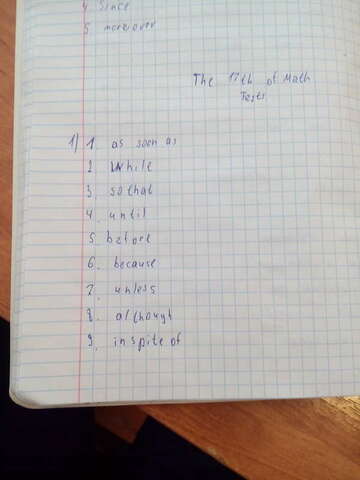 4 Since
5 moreover
The 17th of Math
Tests
1) 1 as soon as
2 While
3. so that
4. until
5. before
6. because
7. unless
8. although
9. in spite of